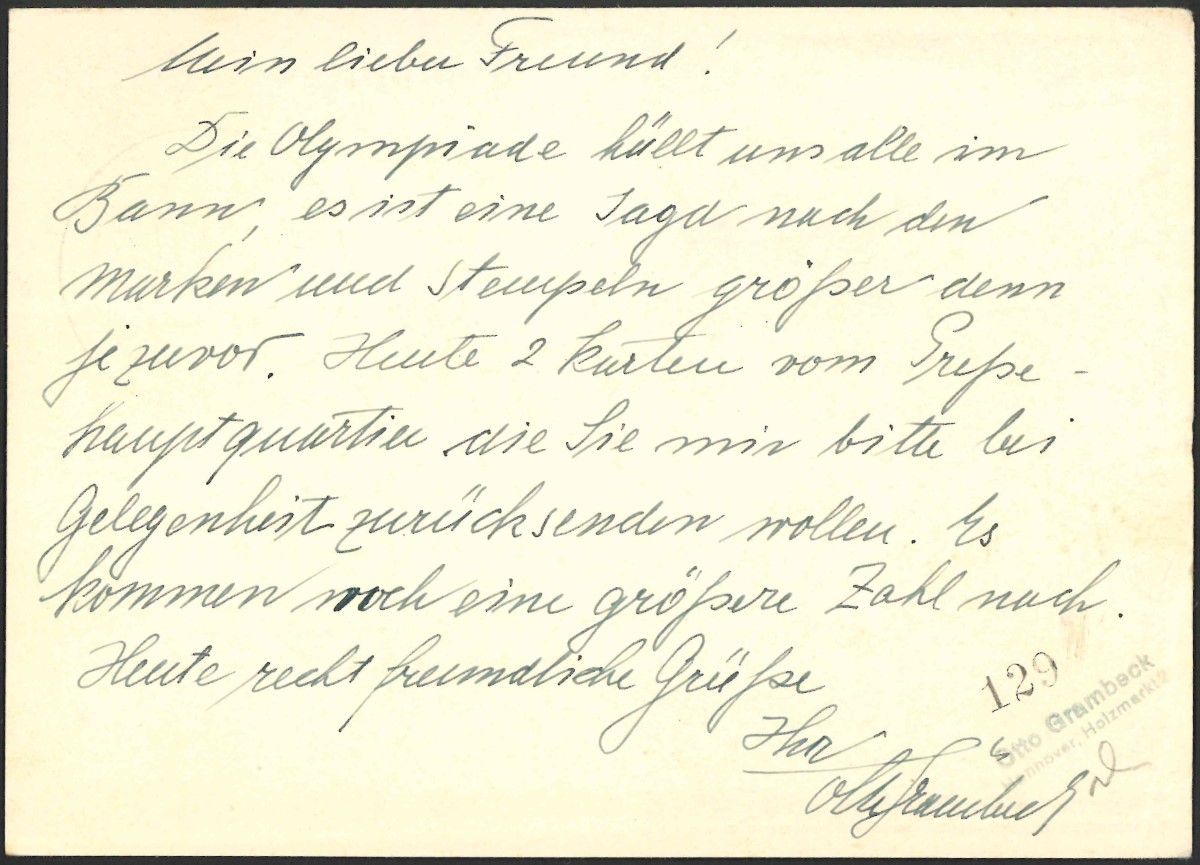 Mein lieber Freund!
Die Olympiade hällt uns alle im
Bann, es ist eine Jagd nach den
Marken und Stempeln größer denn
je zuvor. Heute 2 Karten vom Preße-
hauptquartier die Sie mir bitte bei
Gelegenheit zurücksenden wollen. Es
kommen noch eine größere Zahl nach.
Heute recht freundliche Grüße
Ihr
Otto Grambeck
129
Otto Grambeck
Hannover, Holzmarkt 2